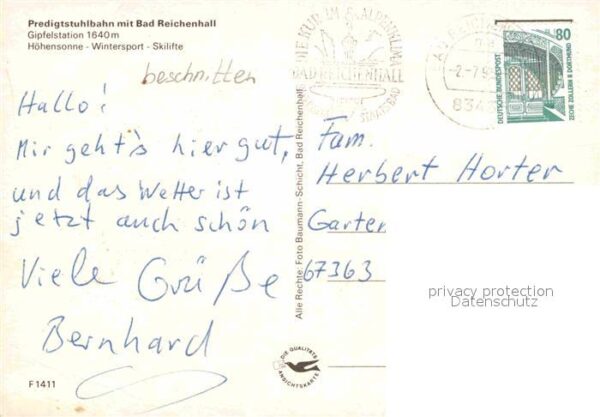 Predigtstuhlbahn mit Bad Reichenhall
Gipfelstation 1640m
Höhensonne - Wintersport - Skilifte
beschnitten
Hallo!
Mir geht's hier gut,
und das Wetter ist
jetzt auch schön
Viele Grüße
Bernhard
F1411
Alle Rechte: Foto Baumann-Schicht, Bad Reichenhall
DIE QUALITÄTS
ANSICHTSKARTE
DIE KUR IM ALPENKLIMA
BAD REICHENHALL
STAATSBAD
-2.-7.9
834
80
DEUTSCHE BUNDESPOST
ZECHE ZOLLERN II DORTMUND
Fam.
Herbert Horter
Garten
67363
privacy protection
Datenschutz